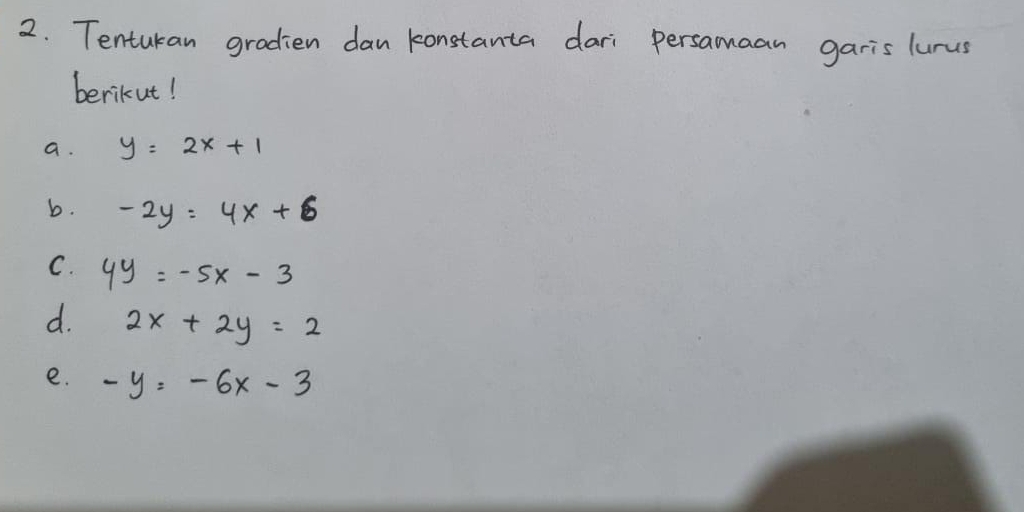 2. Tentukan gradien dan konstanta dari persamaan garis lurus
berikut!
a. y = 2x + 1
b. -2y = 4x + 6
c. 4y = -5x - 3
d. 2x + 2y = 2
e. -y = -6x - 3